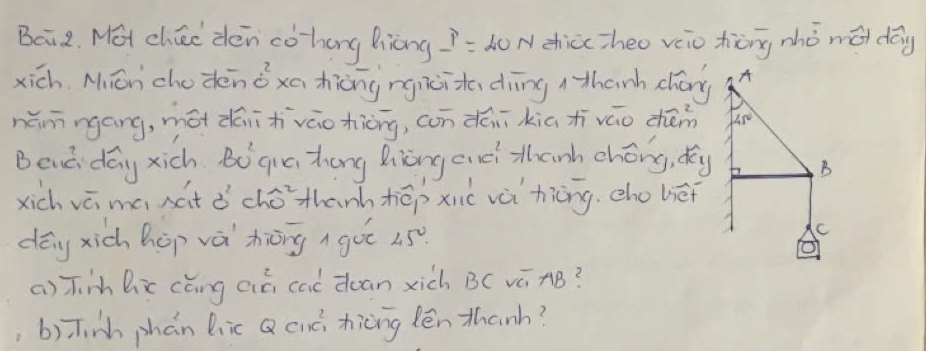 Bài 2. Một chiếc đèn có trọng lượng P = 40 N được treo vào tường nhờ một dây
xích. Muốn cho đèn ở xa tường người ta dùng 1 thanh chống
nằm ngang, một đầu tì vào tường, còn đầu kia tì vào điểm
B của dây xích. Bỏ qua trọng lượng của thanh chống, dây
xích và ma sát ở chỗ thanh tiếp xúc với tường. cho biết
dây xích hợp với tường 1 góc 45°.
a) Tính lực căng của các đoạn xích BC và AB?
b) Tính phản lực Q của tường lên thanh?
A
45°
B
C